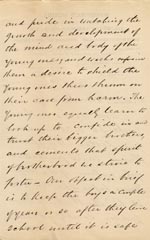 and pride in watching the
growth and development of
the mind and body of the
young ones and works upon
them a desire to shield the
young ones thus thrown on
their care from harm. The
young ones equally learn to
look up to confide in and
trust their bigger brothers,
and cements that spirit
of brotherhood we strive to
foster. Our object in being
is to keep the boys a couple
of years or so after they leave
school until it is safe